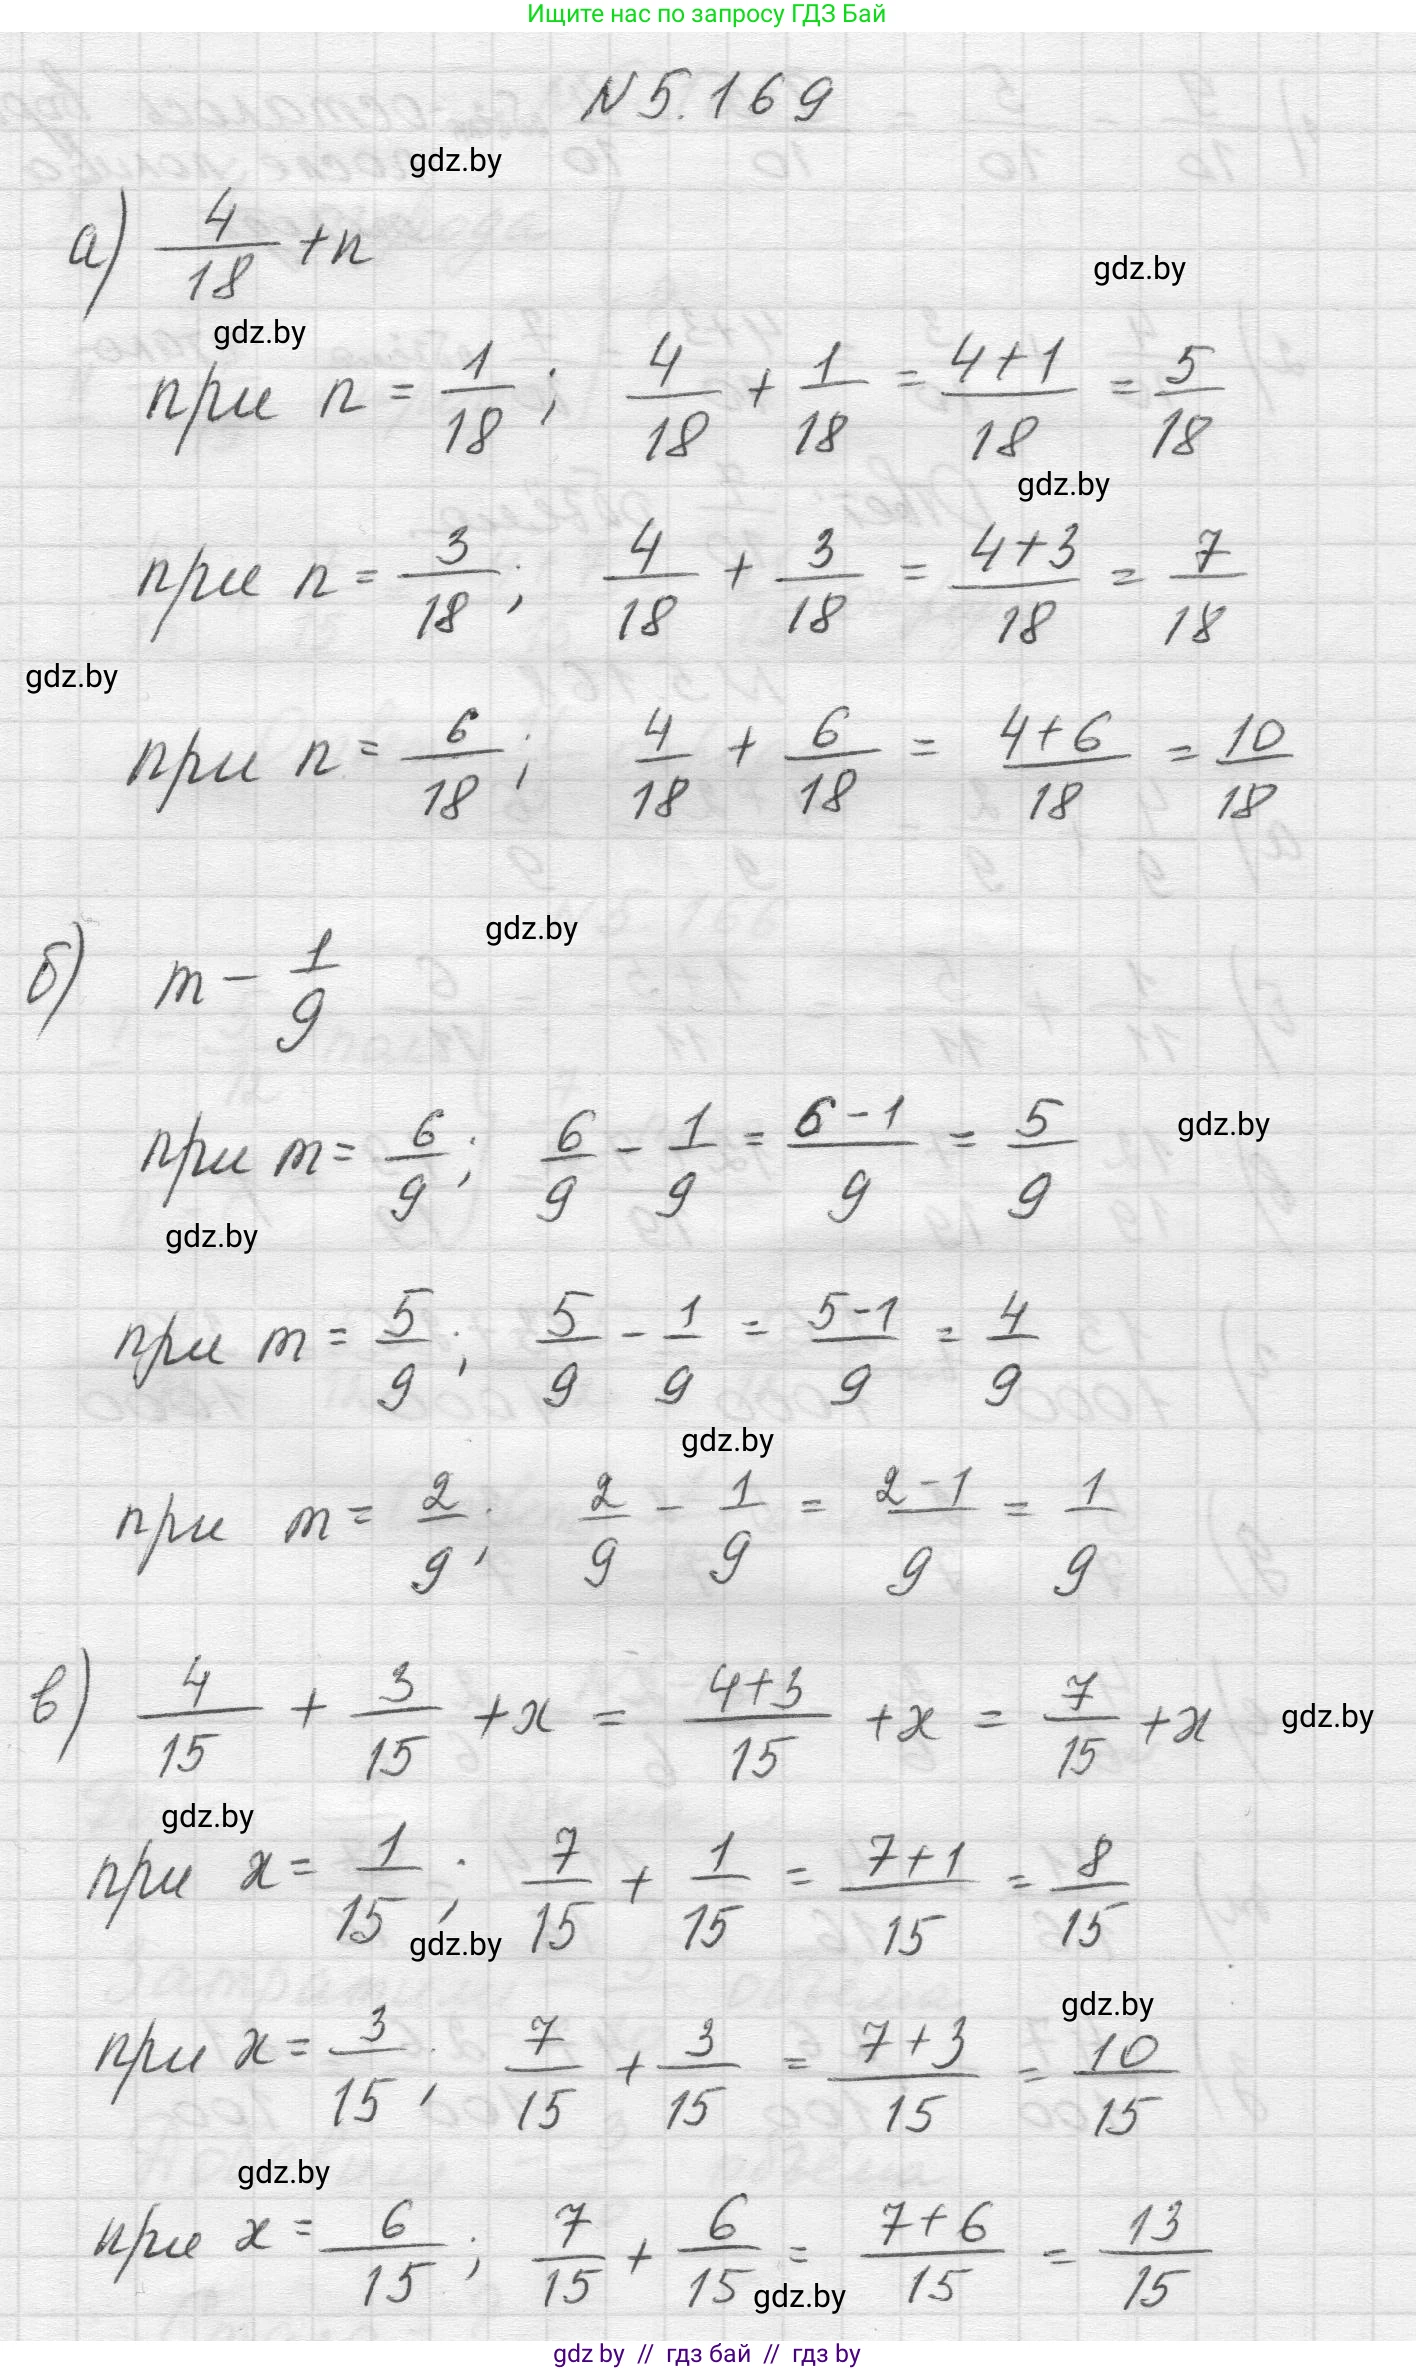 Ищите нас по запросу ГДЗ Бай
N 5.169
gdz.by
а) 4/18 + n
gdz.by
gdz.by
при n = 1/18; 4/18 + 1/18 = (4+1)/18 = 5/18
gdz.by
при n = 3/18; 4/18 + 3/18 = (4+3)/18 = 7/18
gdz.by
при n = 6/18; 4/18 + 6/18 = (4+6)/18 = 10/18
gdz.by
б) m - 1/9
gdz.by
при m = 6/9; 6/9 - 1/9 = (6-1)/9 = 5/9
gdz.by
при m = 5/9; 5/9 - 1/9 = (5-1)/9 = 4/9
gdz.by
при m = 2/9; 2/9 - 1/9 = (2-1)/9 = 1/9
в) 4/15 + 3/15 + x = (4+3)/15 + x = 7/15 + x
gdz.by
gdz.by
при x = 1/15; 7/15 + 1/15 = (7+1)/15 = 8/15
gdz.by
gdz.by
при x = 3/15; 7/15 + 3/15 = (7+3)/15 = 10/15
gdz.by
при x = 6/15; 7/15 + 6/15 = (7+6)/15 = 13/15
gdz.by
gdz by // гдз бай // гдз by